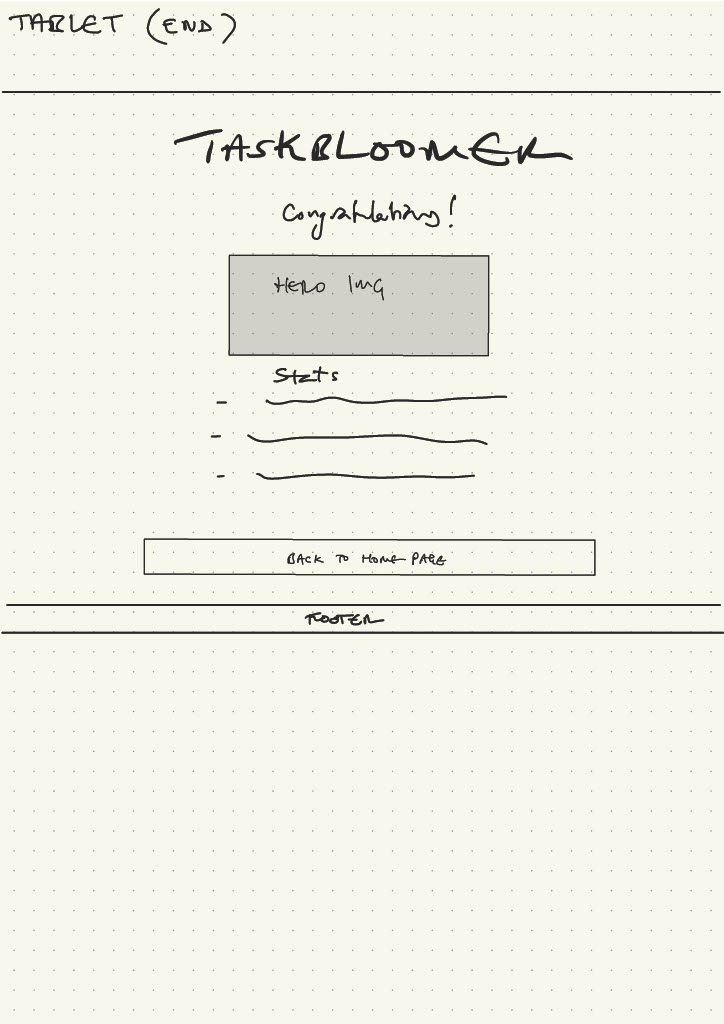 TABLET (END)
TASKBLOOMER
Congratulations!
HERO IMG
Stats
BACK TO HOME PAGE
FOOTER